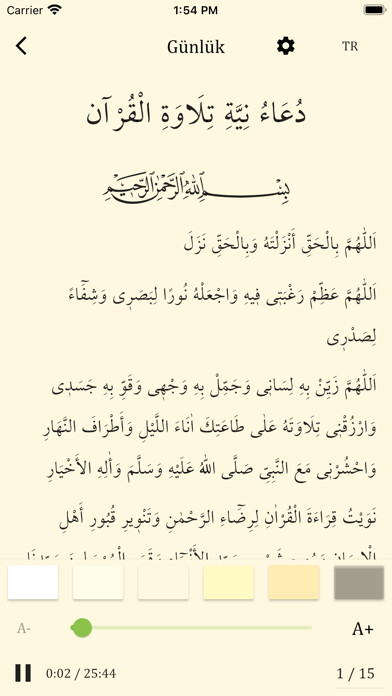 Carrier 1:54 PM
Günlük TR
دُعَاءُ نِيَّةِ تِلَاوَةِ الْقُرْآن
بِسْمِ اللّٰهِ الرَّحْمٰنِ الرَّحٖيمِ
اَللّٰهُمَّ بِالْحَقِّ أَنْزَلْتَهُ وَبِالْحَقِّ نَزَلَ
اَللّٰهُمَّ عَظِّمْ رَغْبَتٖى فٖيهِ وَاجْعَلْهُ نُورًا لِبَصَرٖى وَشِفَٓاءً
لِصَدْرٖى
اَللّٰهُمَّ زَيِّنْ بِهِ لِسَانٖى وَجَمِّلْ بِهِ وَجْهٖى وَقَوِّ بِهِ جَسَدٖى
وَارْزُقْنٖى تِلَاوَتَهُ عَلٰى طَاعَتِكَ اٰنَاءَ اللَّيْلِ وَأَطْرَافَ النَّهَارِ
وَاحْشُرْنٖى مَعَ النَّبِيِّ صَلَّى اللهُ عَلَيْهِ وَسَلَّمَ وَأٰلِهِ الْأَخْيَارِ
نَوَيْتُ قِرَاءَةَ الْقُرْاٰنِ لِرِضَٓاءِ الرَّحْمٰنِ وَتَنْوٖيرِ قُبُورِ أَهْلِ
A- A+
0:02 / 25:44 1 / 15